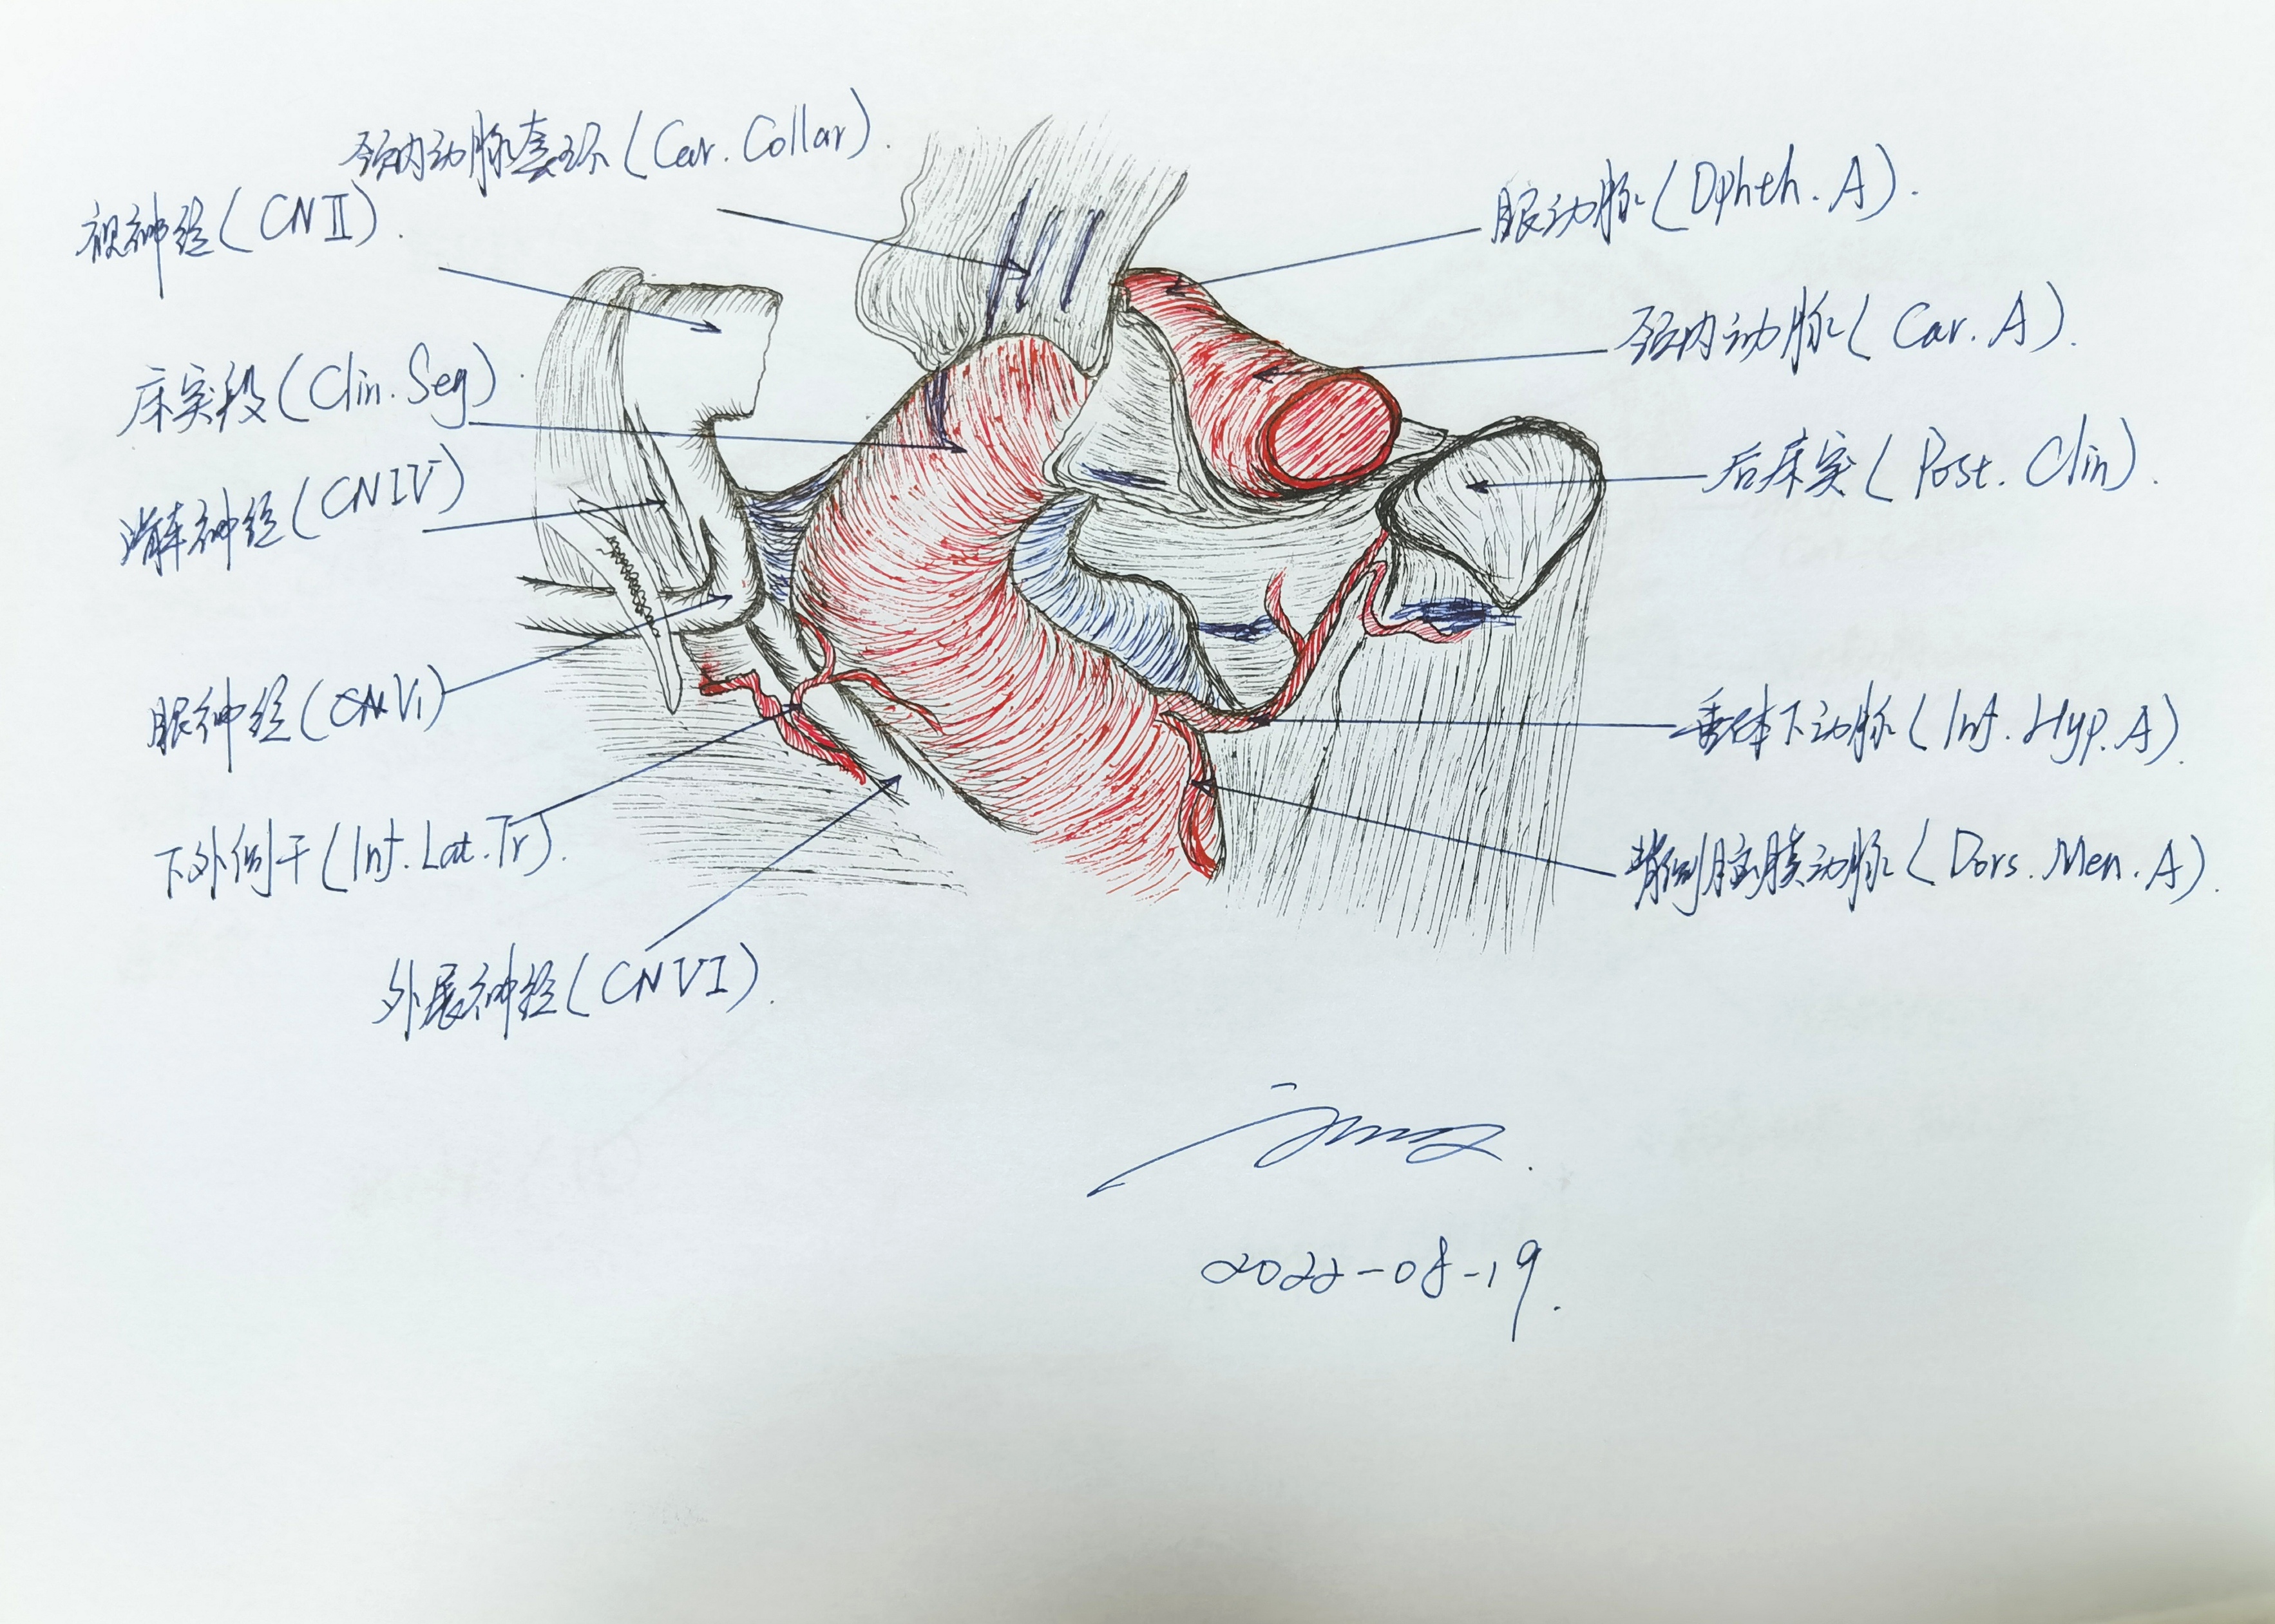 颈内动脉套环(Car. Collar).
视神经(CNⅡ).
床突段(Clin. Seg).
滑车神经(CNIV)
眼神经(CNV1)
下外侧干(Inf. Lat. Tr).
外展神经(CNVI).
眼动脉(Ophth. A).
颈内动脉(Car. A).
后床突(Post. Clin).
垂体下动脉(Inf. Hyp. A).
背侧脑膜动脉(Dors. Men. A).
2022-08-19.